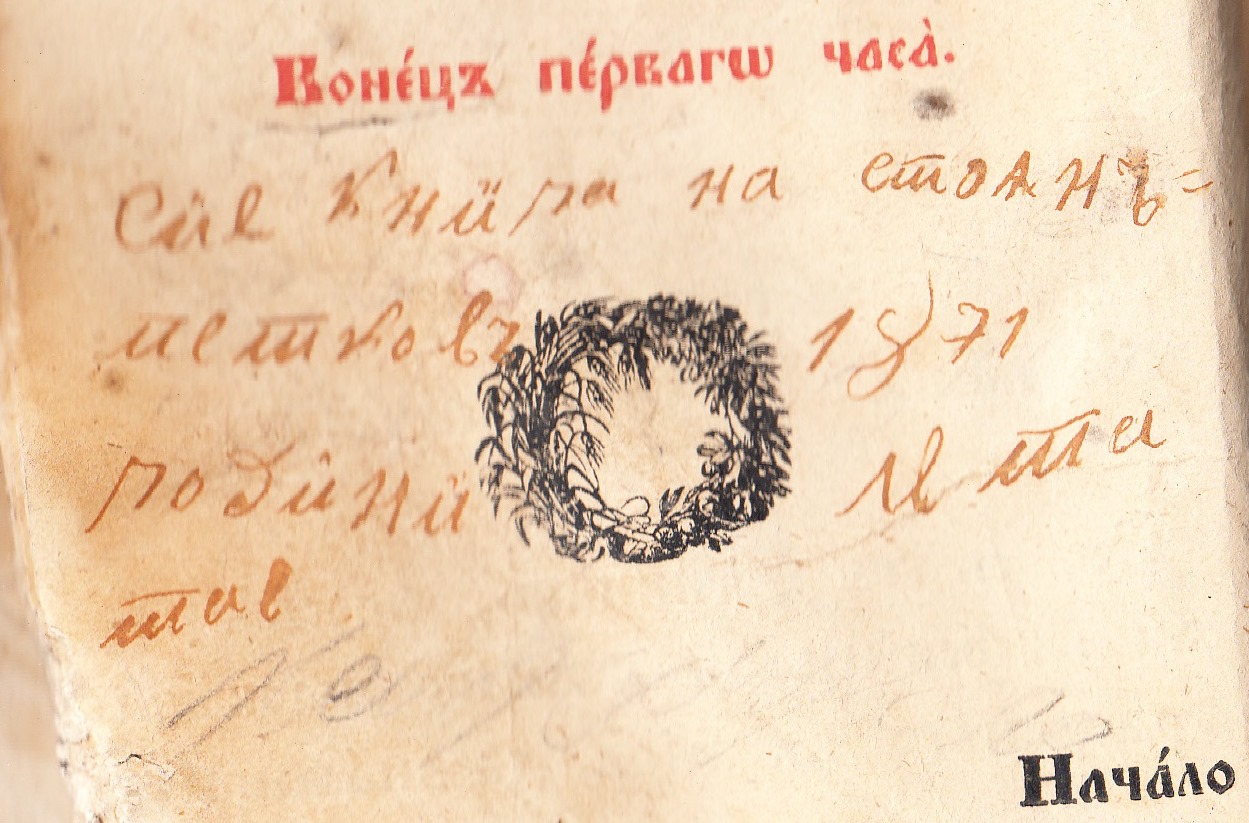 Конéцъ пéрвагѡ часà.
Сiе книга на стоянъ=
петковъ 1871
годiни лета
тае
Начáло